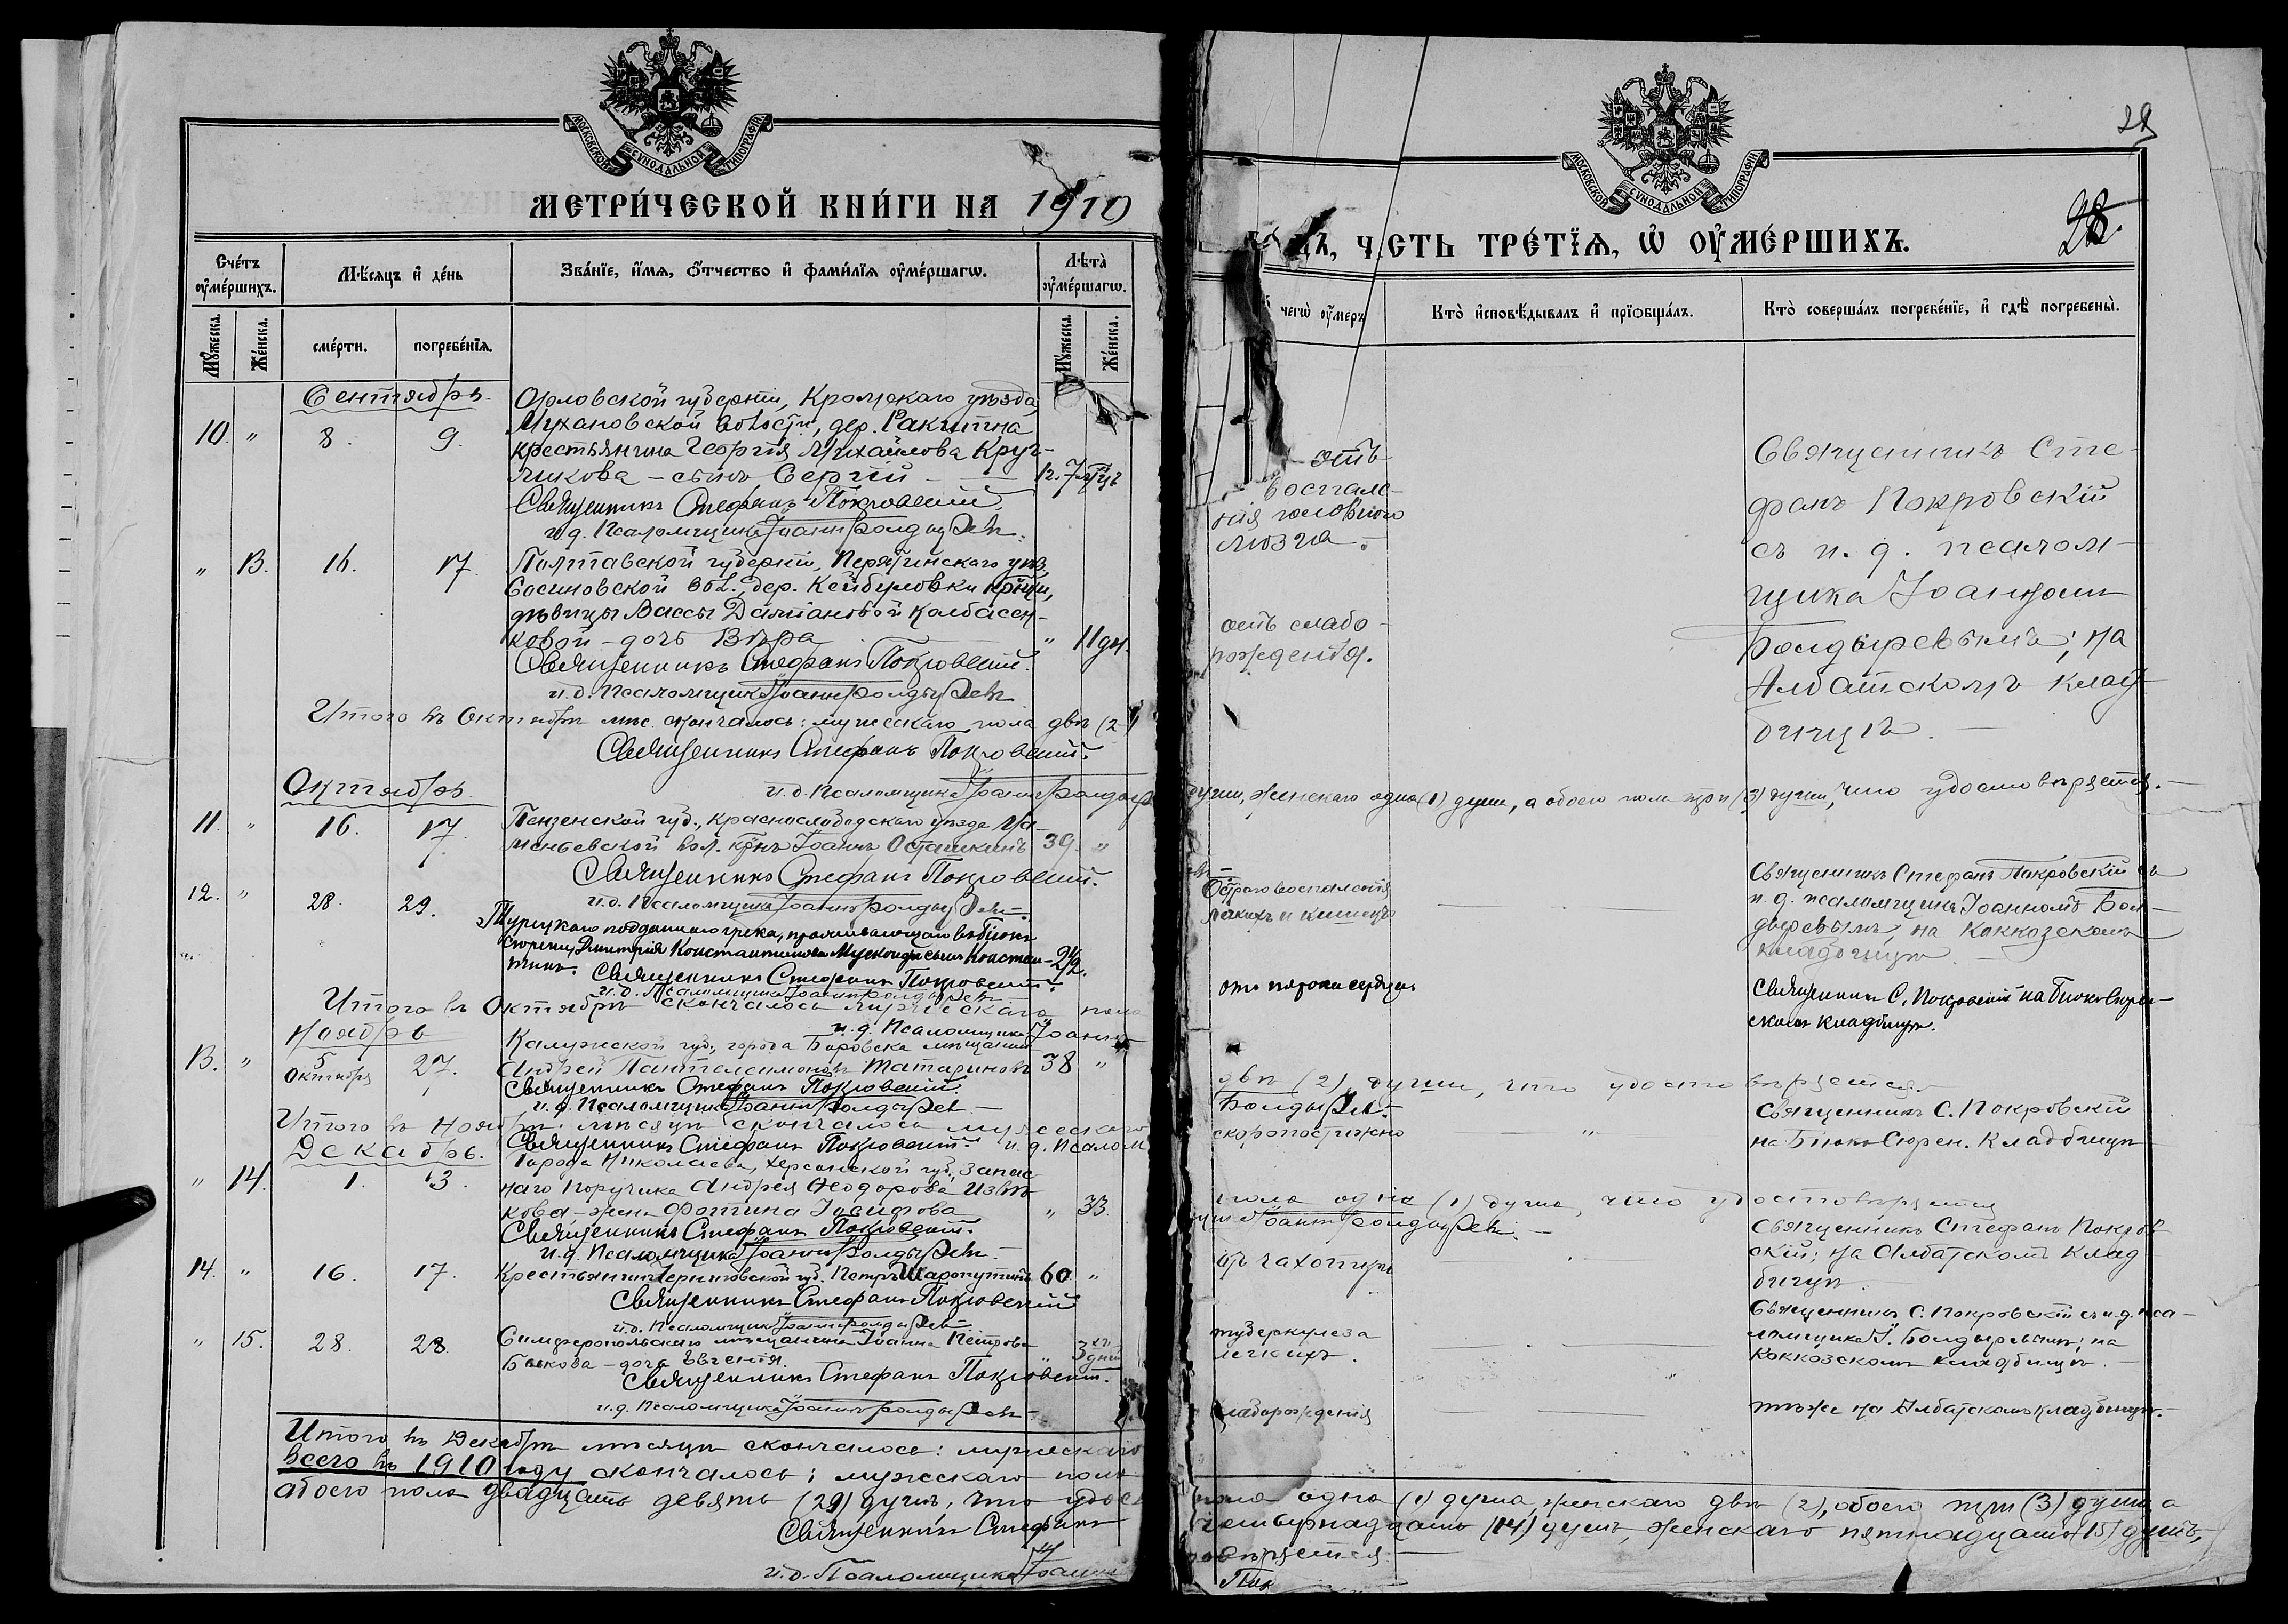 МОСКОВСКОЙ СѴНОДАЛЬНОЙ ТИПОГРАФІИ
МЕТРИ́ЧЕСКОЙ КНИ́ГИ НА 1910
Сче́тъ оу҆ме́ршихъ.
Мѣ́сяцъ и҆ де́нь
Зва́нїе, и҆́мя, ѻ҆́тчество и҆ фами́лїя оу҆ме́ршагѡ.
Лѣта̀ оу҆ме́ршагѡ.
Мꙋ́жеска.
Же́нска.
сме́рти.
погребе́нїя.
Мꙋ́жеска.
Же́нска.
Сентябрь.
10. " 8. 9.
Орловской губерніи, Кромскаго уѣзда,
волости, дер. Ракитна
крестьянина Георгія Михайлова Круч-
никова - сынъ Сергій
Священникъ Стефанъ Покровскій.
и. д. Псаломщика Іоаннъ Болдыревъ.
" 13. 16. 17.
Полтавской губерніи, Пирятинскаго уѣз.,
Сосиновской вол., дер. Кейбуловки
дѣвицы Вассы Даміановой Колбасен-
ковой - дочь Вѣра " 11 дн.
Священникъ Стефанъ Покровскій.
и. д. Псаломщика Іоаннъ Болдыревъ
Итого въ Октябрѣ мѣс. скончалось: мужескаго пола двѣ (2)
Священникъ Стефанъ Покровскій.
и. д. Псаломщика Іоаннъ Болдыр
Октябрь.
11. " 16. 17.
Пензенской губ., Краснослободскаго уѣзда
вол. кр-нъ Іоаннъ Осташкинъ 39. "
Священникъ Стефанъ Покровскій.
и. д. Псаломщика Іоаннъ Болдыревъ.
12. " 28. 29.
Турецкаго подданнаго грека, проживающаго въ Біюкъ
Сюрени, Димитрія Константинова сынъ Констан-
тинъ. 2½.
Священникъ Стефанъ Покровскій.
и. д. Псаломщика Іоаннъ Болдыревъ
Итого въ Октябрѣ скончалось мужескаго пола
и. д. Псаломщика Іоаннъ
Ноябрь
13. " 5 Октября 27.
Калужской губ., города Боровска мѣщанинъ
Андрей Пантелеимоновъ Татариновъ 38 "
Священникъ Стефанъ Покровскій.
и. д. Псаломщика Іоаннъ Болдыревъ.
Итого въ Ноябрѣ мѣсяцѣ скончалось мужескаго
Священникъ Стефанъ Покровскій. и. д. Псалом
Декабрь.
" 14. 1. 3.
Города Николаева, Херсонской губ., запас-
наго поручика Андрея Ѳеодорова
кова - жена Фотина Іосифова " 33.
Священникъ Стефанъ Покровскій.
и. д. Псаломщика Іоаннъ Болдыревъ.
14. " 16. 17.
Крестьянинъ Черниговской губ. Петръ Шаропутинъ 60. "
Священникъ Стефанъ Покровскій
и. д. Псаломщика Іоаннъ Болдыревъ
" 15. 28. 28.
Симферопольскаго мѣщанина Іоанна Петрова
Быкова - дочь Евгенія. " 3 дней
Священникъ Стефанъ Покровскій.
и. д. Псаломщика Іоаннъ Болдыревъ
Итого въ Декабрѣ мѣсяцѣ скончалось: мужескаго
всего въ 1910 году скончалось: мужескаго пола
обоего пола двадцать девять (29) душъ, что удос
Священникъ Стефанъ
и. д. Псаломщика Іоаннъ
29
28.
МОСКОВСКОЙ СѴНОДАЛЬНОЙ ТИПОГРАФІИ
ДЪ, ЧАСТЬ ТРЕ́ТЇЯ, Ѡ҆ ОУ҆МЕ́РШИХЪ.
чегѡ̀ оу҆́меръ
Кто̀ и҆сповѣ́дывалъ и҆ прїѡбща́лъ.
Кто̀ соверша́лъ погребе́нїе, и҆ гдѣ̀ погребены̀.
отъ
воспале-
нія головного
мозга.
Священникъ Сте-
фанъ Покровскій
съ и. д. псалом-
щика Іоанномъ
Болдыревымъ; на
Албатскомъ клад-
бищѣ.
отъ слабо-
рожденія.
души, женскаго одна (1) душа, а обоего пола три (3) души, что удостовѣряется.
Остраго воспаленія
легкихъ и кишекъ
Священникъ Стефанъ Покровскій съ
и. д. псаломщика Іоанномъ Бол-
дыревымъ, на Коккозскомъ
кладбищѣ.
отъ порока сердца.
Священникъ С. Покровскій на Біюкъ Сюрен-
скомъ кладбищѣ.
двѣ (2) души, что удостовѣряется.
Болдыревъ.
скоропостижно "
Священникъ С. Покровскій
на Біюкъ Сюрен. Кладбищѣ
пола одна (1) душа, что удостовѣряется
Іоаннъ Болдыревъ.
отъ чахотки
Священникъ Стефанъ Покров-
скій; на Албатскомъ клад-
бищѣ.
туберкулеза
легкихъ.
Священникъ С. Покровскій съ и. д. пса-
ломщика І. Болдыревымъ; на
Коккозскомъ кладбищѣ.
слаборожденія
тѣ же на Албатскомъ кладбищѣ.
пола одна (1) душа, женскаго двѣ (2), обоего три (3) души, а
четырнадцать (14) душъ, женскаго пятнадцать (15) душъ,
товѣряется
Пок